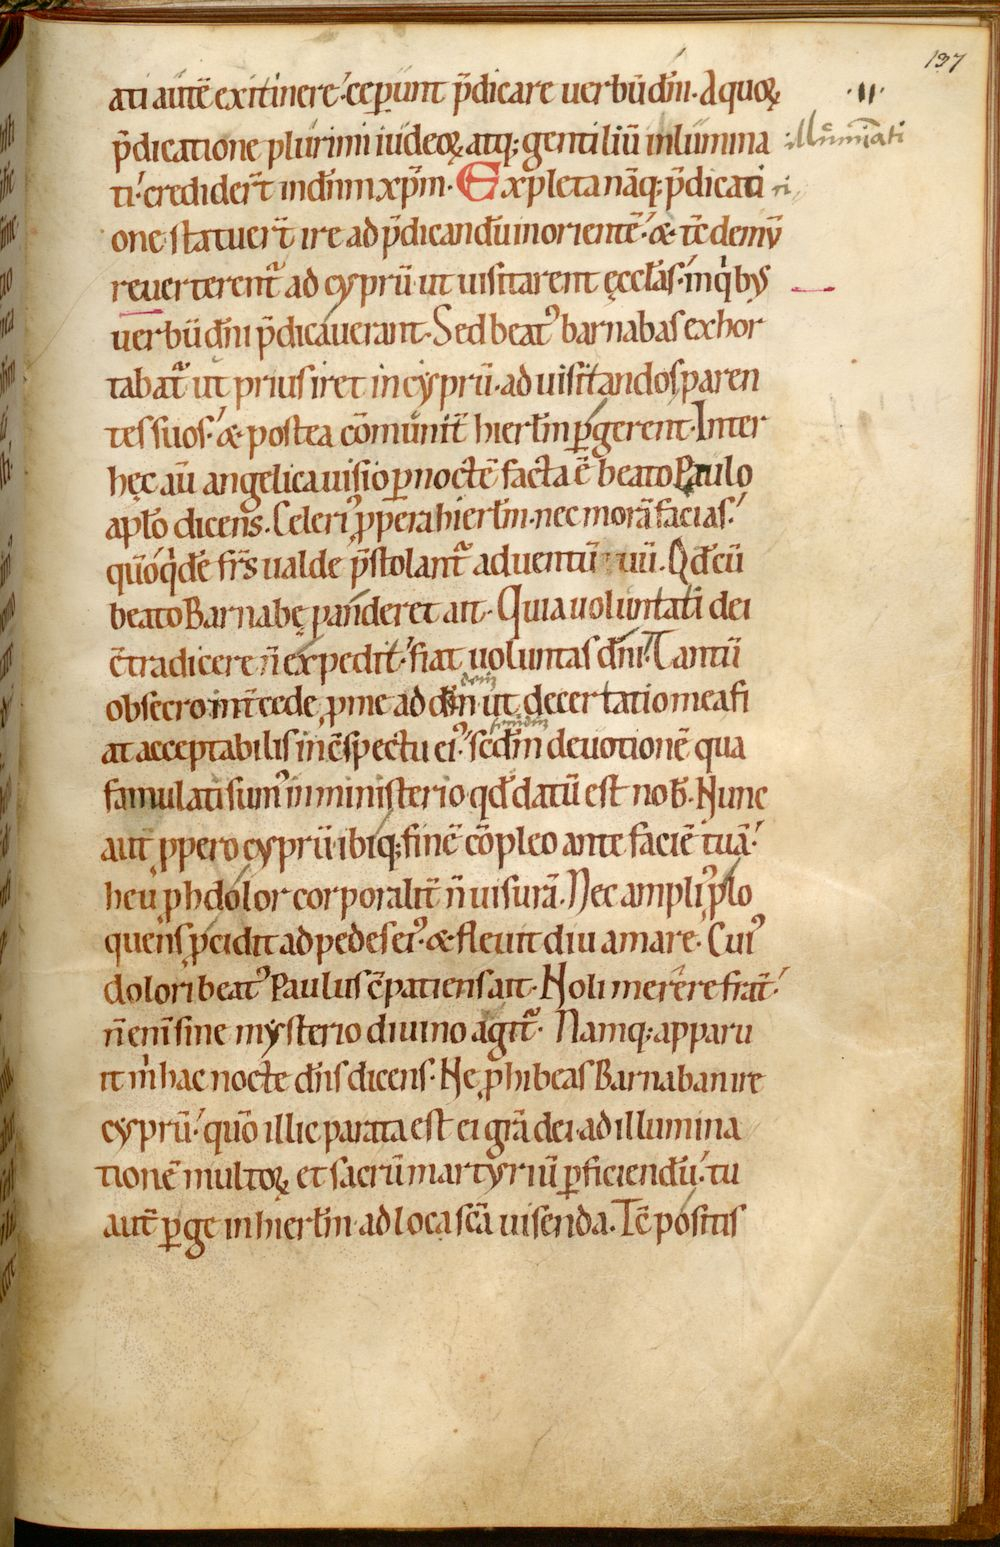 137
ati autē ex itinere. ceperunt p̄dicare uerbū dn̄i. A quoꝝ
·II·
p̄dicatione plurimi iudeoꝝ atq; gentiliū inlumina
illuminati
ti. credidert̄ in dn̄m xp̄m. Expleta nāq; p̄dicati
one statuert̄ ire ad p̄dicandū in orientē. & tc̄ demū
reuerterent᷑ ad cyprū ut uisitarent ęccl̄as. in qͥbꝰ
uerbū dn̄i p̄dicauerant. Sed beatꝰ barnabas exhor
tabat᷑ ut prius iret in cyprū. ad uisitandos paren
tes suos. & postea cōmunit̄ hierl̄m ꝑgerent. Inter
hęc aū angelica uisio ꝑ noctē facta ē beato Paulo
apl̄o dicens. Celeriꝰ ꝓpera hierl̄m. nec morā facias.
quō qͥdē fr̄s ualde p̄stolant᷑ aduentū tuū. Qd̄ cū
beato Barnabę panderet ait. Quia uoluntati dei
c̄tradicere n̄ expedit. fiat uoluntas dn̄i. Tantū
obsecro int̄cede ꝓ me ad dn̄m ut decertatio mea fi
at acceptabilis in c̄spectu eiꝰ. scdm̄ deuotionē qua
famulati sumꝰ in ministerio qd̄ datū est nob̄. Nunc
aut̄ ꝓpero cyprū. ibiq; finē cōpleo ante faciē tuā.
heu ꝓh dolor corporalit̄ n̄ uisurā. Nec ampliꝰ ꝓlo
quens ꝓcidit ad pedes eiꝰ. & fleuit diu amare. Cuiꝰ
dolori beatꝰ Paulus c̄patiens ait. Noli merere frat̄.
n̄ eni̅ sine mysterio diuino agit᷑. Namq; apparu
it m̍ hac nocte dn̄s dicens. Ne ꝓhibeas Barnaban ire
cyprū. quō illic parata est ei gr̄a dei. ad illumina
tionē multoꝝ et sacrū martyriū ꝑficiendū. tu
aut̄ ꝑge in hierl̄m ad loca sc̄a uisenda. Tc̄ positis